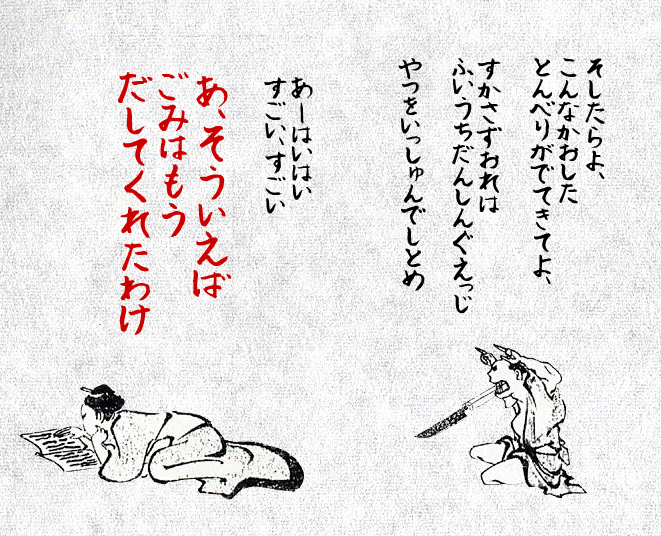 そしたらよ、
こんなかおした
とんべりがでてきてよ、
すかさずおれは
ふいうちだんしんぐえっじ
やつをいっしゅんでしとめ
あーはいはい
すごい、すごい
あ、そういえば
ごみはもう
だしてくれたわけ